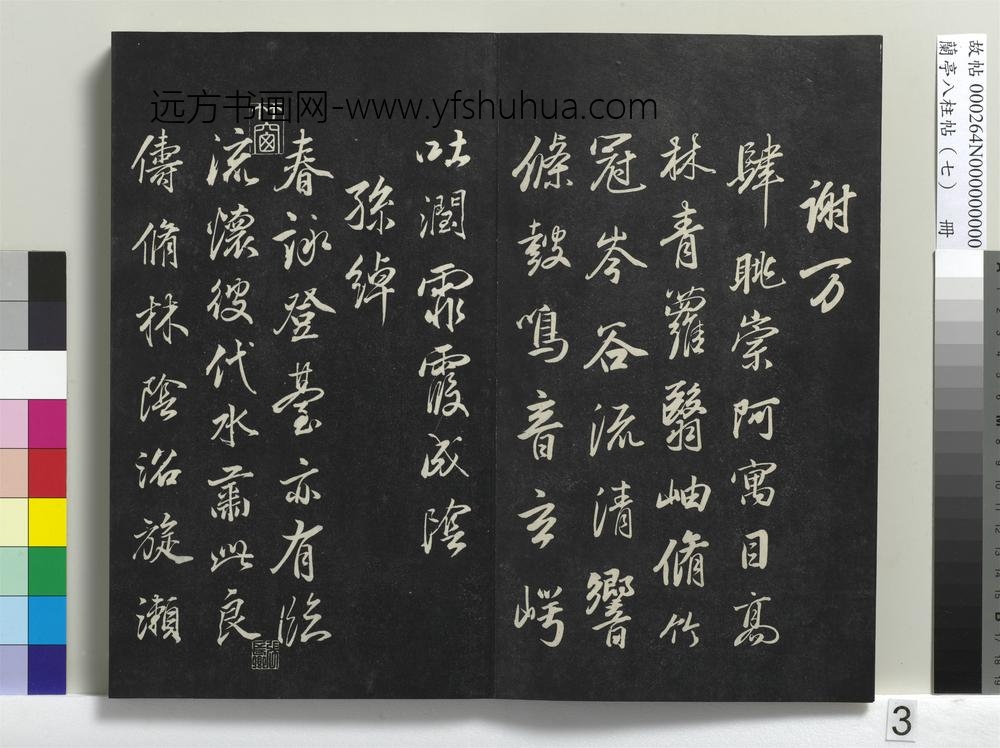 远方书画网-www.yfshuhua.com
謝万
肆眺崇阿寓目高
林青蘿翳岫脩竹
冠岑谷流清響
條鼓鳴音玄崿
吐潤霏霞成陰
孫綽
春詠登臺亦有臨
流懷彼代水肅此良
儔脩林陰沼旋瀨
故帖 000264N000000000
蘭亭八柱帖(七) 冊
3